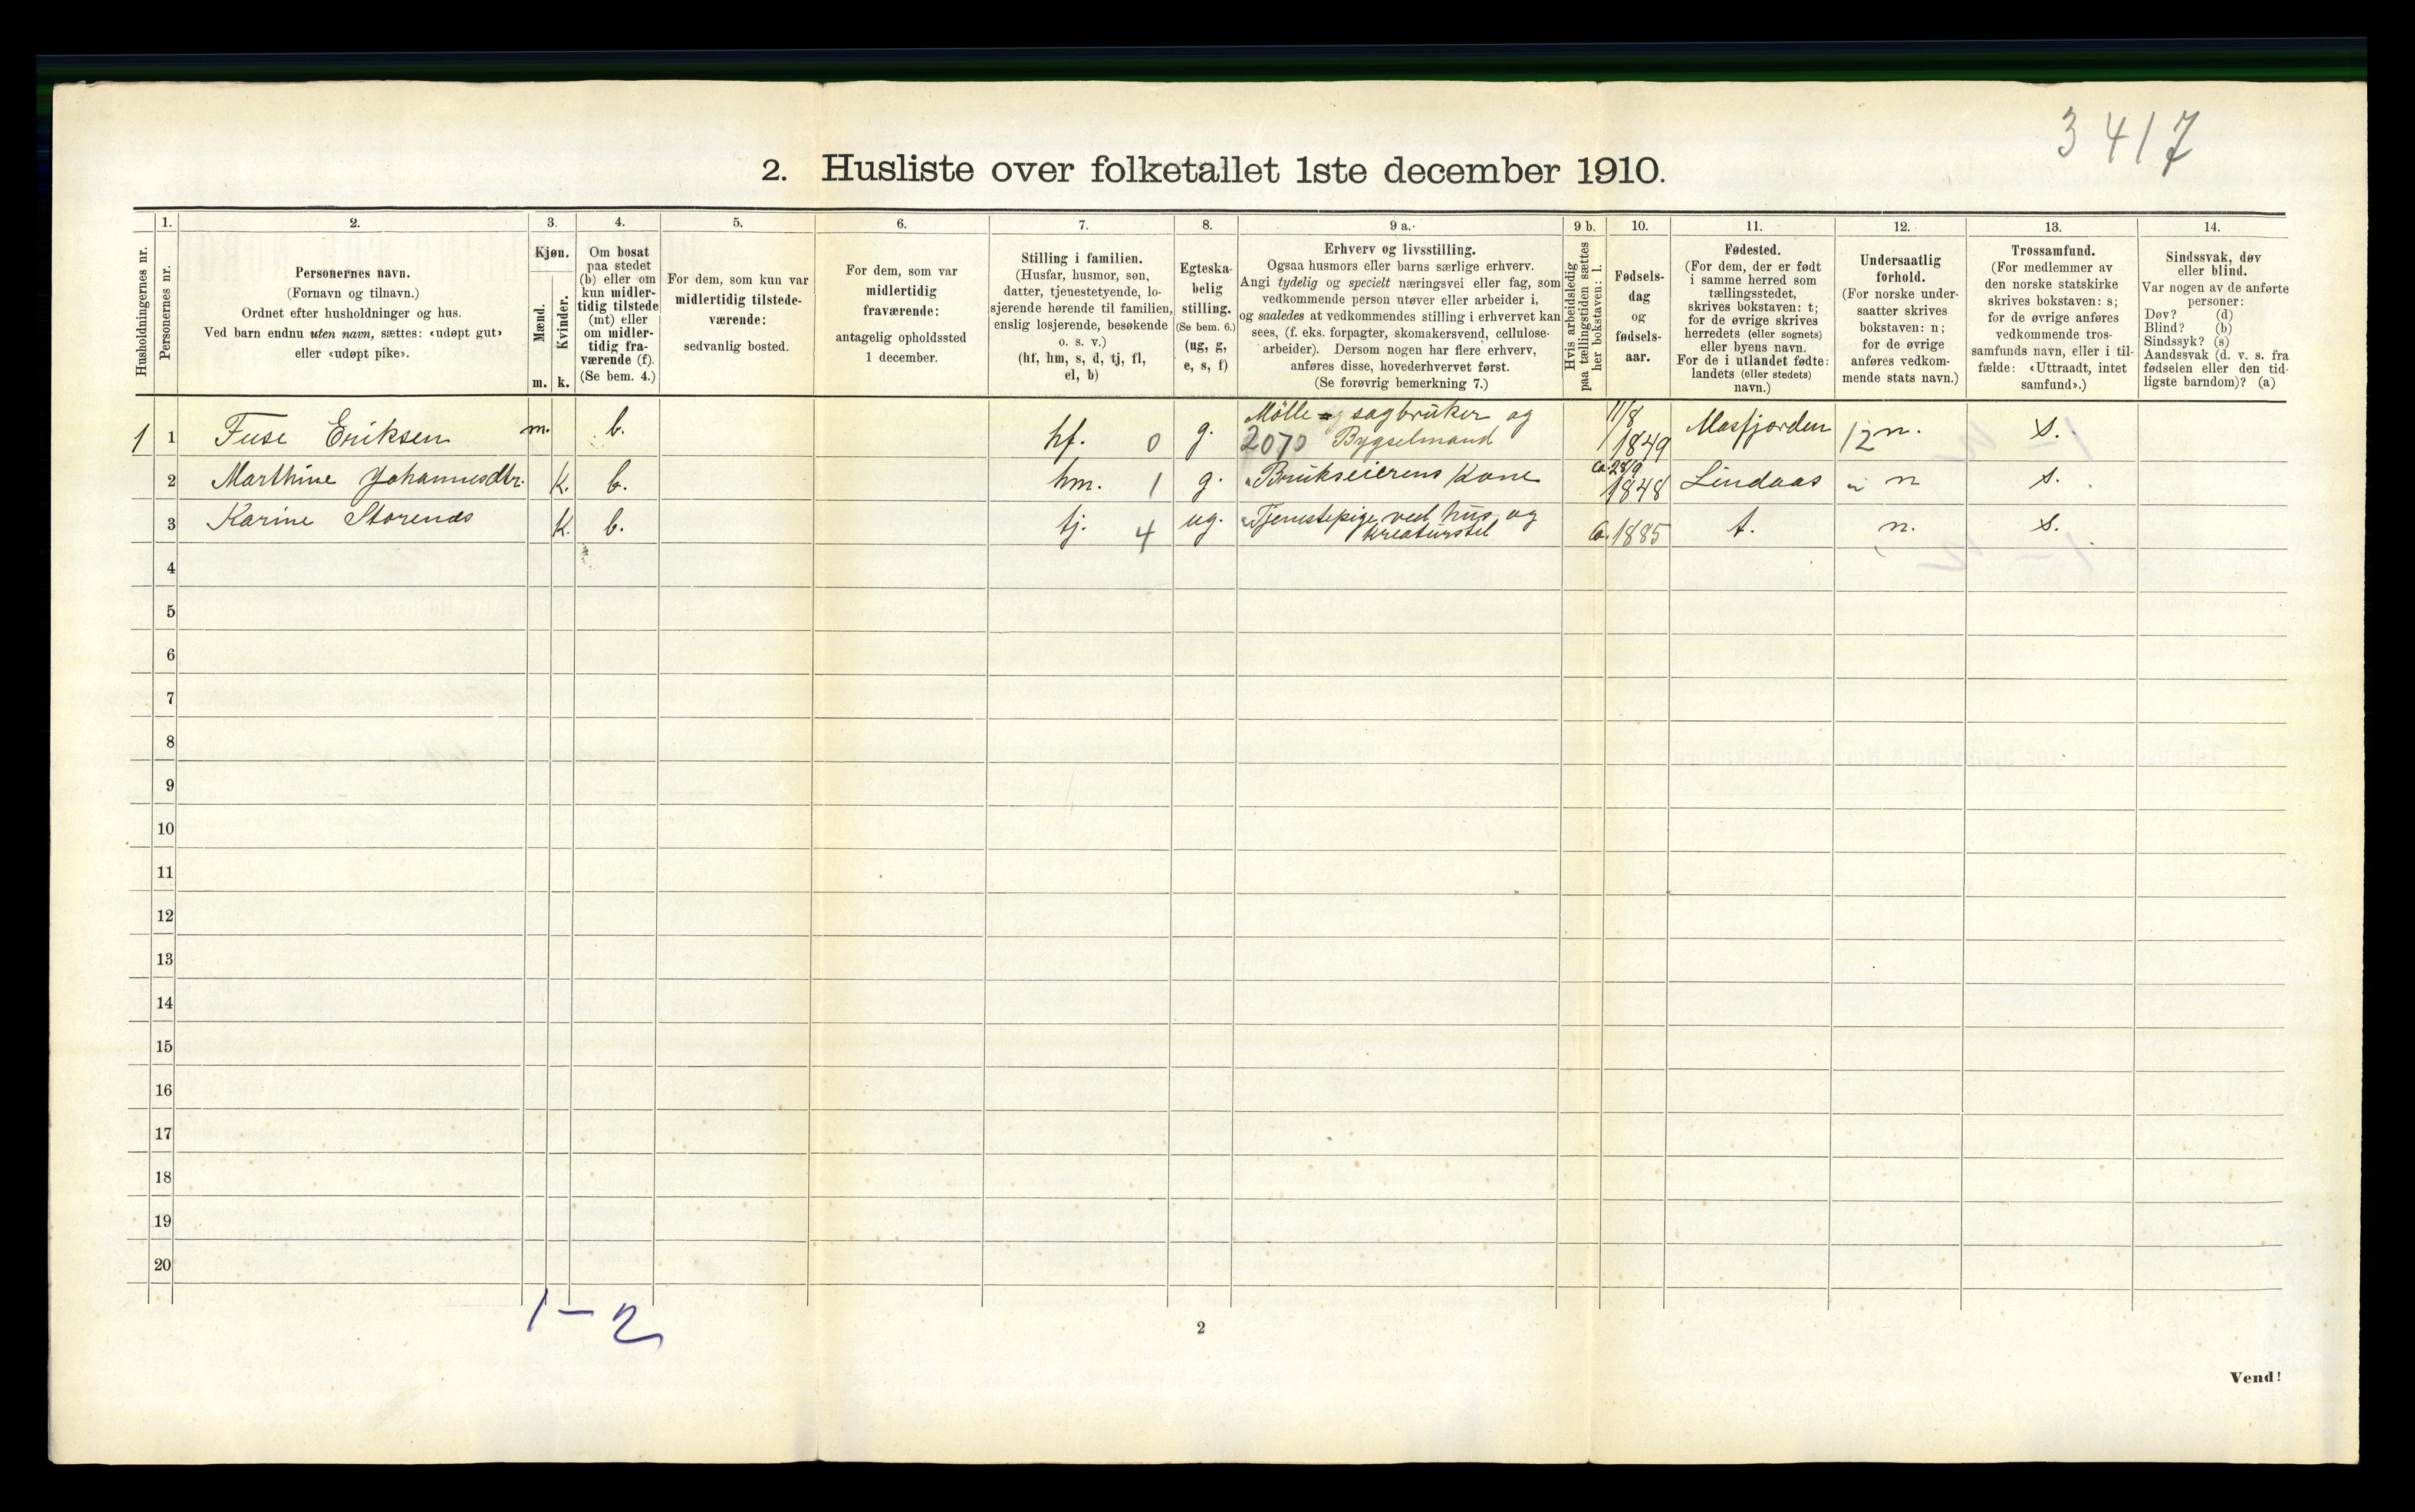 3417
2. Husliste over folketallet 1ste december 1910.
Husholdningernes nr.
1.
Personernes nr.
2.
Personernes navn.
(Fornavn og tilnavn.)
Ordnet efter husholdninger og hus.
Ved barn endnu uten navn, sættes: «udøpt gut»
eller «udøpt pike».
3.
Kjøn.
Mænd.
Kvinder.
m. k.
4.
Om bosat
paa stedet
(b) eller om
kun midler-
tidig tilstede
(mt) eller
om midler-
tidig fra-
værende (f).
(Se bem. 4.)
5.
For dem, som kun var
midlertidig tilstede-
værende:
sedvanlig bosted.
6.
For dem, som var
midlertidig
fraværende:
antagelig opholdssted
1 december.
7.
Stilling i familien.
(Husfar, husmor, søn,
datter, tjenestetyende, lo-
sjerende hørende til familien,
enslig losjerende, besøkende
o. s. v.)
(hf, hm, s, d, tj, fl,
el, b)
8.
Egteska-
belig
stilling.
(Se bem. 6.)
(ug, g,
e, s, f)
9 a.
Erhverv og livsstilling.
Ogsaa husmors eller barns særlige erhverv.
Angi tydelig og specielt næringsvei eller fag, som
vedkommende person utøver eller arbeider i,
og saaledes at vedkommendes stilling i erhvervet kan
sees, (f. eks. forpagter, skomakersvend, cellulose-
arbeider). Dersom nogen har flere erhverv,
anføres disse, hovederhvervet først.
(Se forøvrig bemerkning 7.)
9 b.
Hvis arbeidsledig
paa tællingstiden sættes
her bokstaven: l.
10.
Fødsels-
dag
og
fødsels-
aar.
11.
Fødested.
(For dem, der er født
i samme herred som
tællingsstedet,
skrives bokstaven: t;
for de øvrige skrives
herredets (eller sognets)
eller byens navn.
For de i utlandet fødte:
landets (eller stedets)
navn.)
12.
Undersaatlig
forhold.
(For norske under-
saatter skrives
bokstaven: n;
for de øvrige
anføres vedkom-
mende stats navn.)
13.
Trossamfund.
(For medlemmer av
den norske statskirke
skrives bokstaven: s;
for de øvrige anføres
vedkommende tros-
samfunds navn, eller i til-
fælde: «Uttraadt, intet
samfund».)
14.
Sindssvak, døv
eller blind.
Var nogen av de anførte
personer:
Døv? (d)
Blind? (b)
Sindssyk? (s)
Aandssvak (d. v. s. fra
fødselen eller den tid-
ligste barndom)? (a)
1 1 Fuse Eriksen m. b. hf. 0 g. Mølle og sagbruker og 2070 Bygselmand 11/8 1849 Masfjorden 12 n. s.
2 Marthine Johannesdtr. k. b. hm. 1 g. Brukseierens Kone ca. 28/9 1848 Lindaas n s.
3 Karine Storenes k. b. tj. 4 ug. Tjenestepige ved hus og kreaturstel ca. 1885 t. n. s.
4
5
6
7
8
9
10
11
12
13
14
15
16
17
18
19
20
1 – 2
2
Vend!